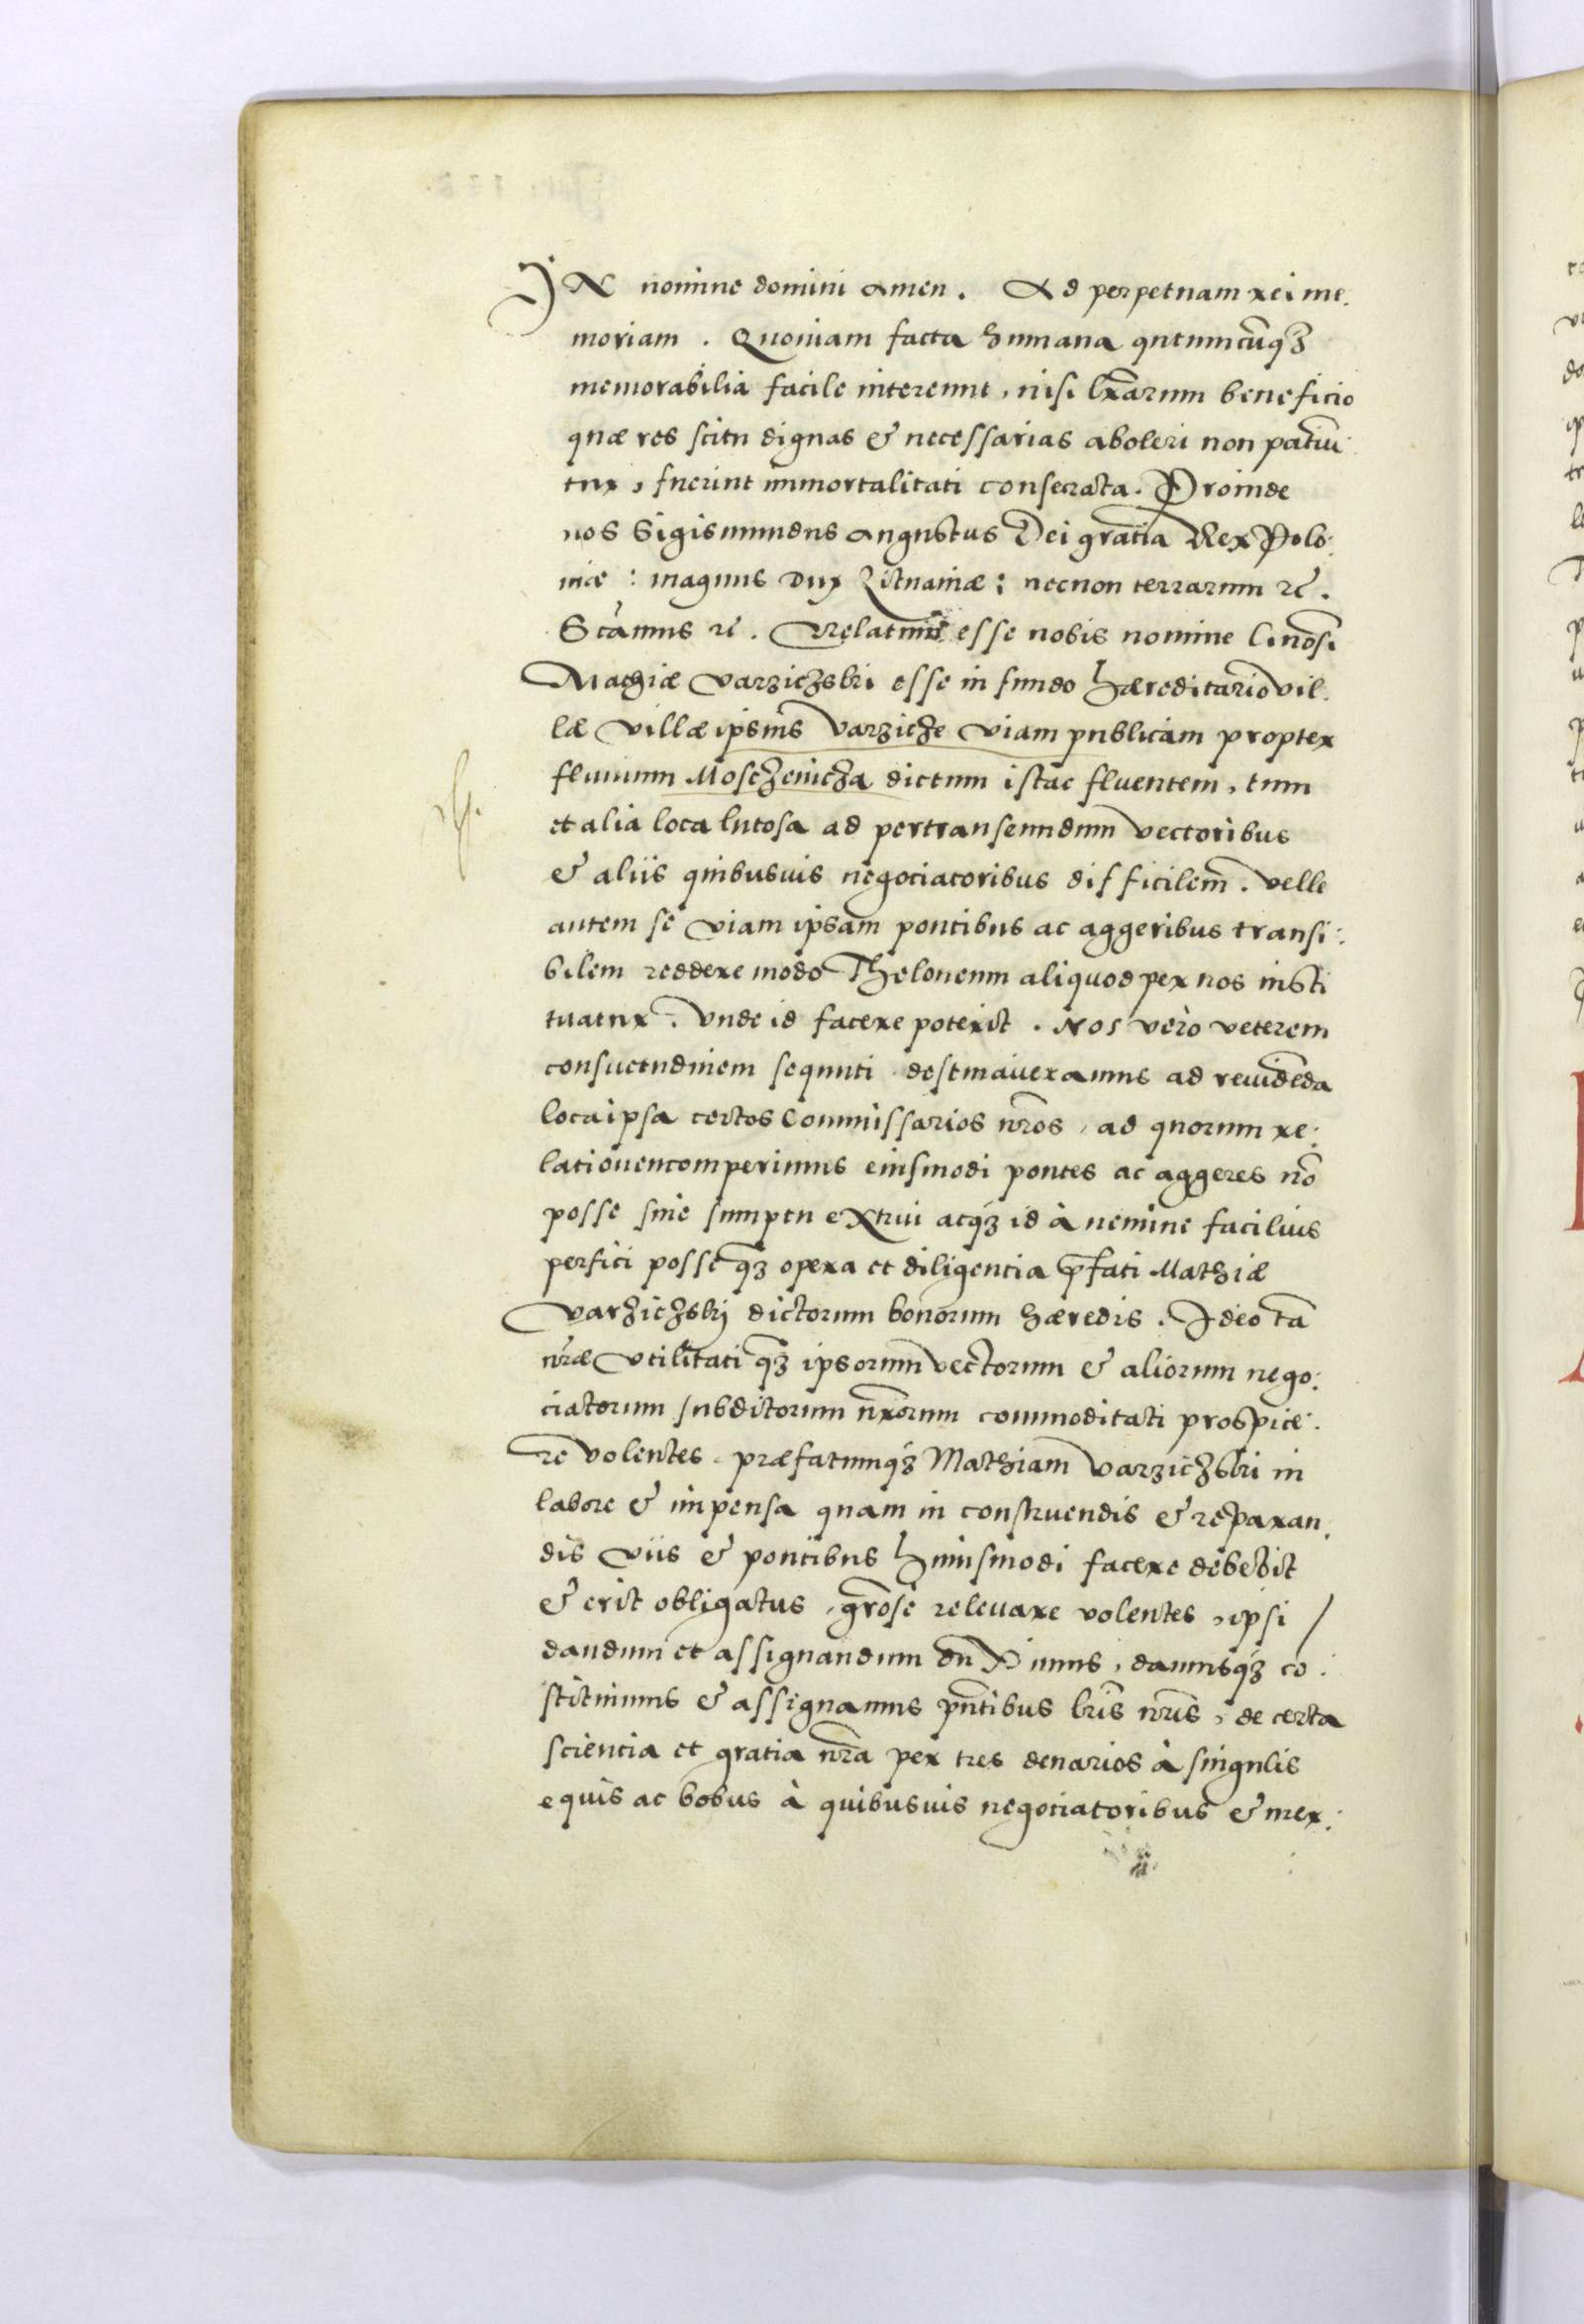 IN nomine domini amen. Ad perpetuam rei me:
moriam. Quoniam facta humana qntumcũq₃
memorabilia facile intereunt, nisi lr̃arum beneficio
quæ res scitu dignas & necessarias aboleri non patiũ:
tur, fuerint immortalitati consecrata. Proinde
nos Sigismundus Augustus Dei gratia Rex Polo:
niæ: magnus Dux Lituaniæ: necnon terrarum rc̃.
Relatum esse nobis nomine
Mathiæ Varzichski esse in fundo hæreditario vil:
læ villæ ipsius Varziche viam publicam propter
fluuium Moschenicha dictum istac fluentem, tum
et alia loca lutosa ad pertranseundum vectoribus
& aliis quibusuis negociatoribus difficilem. Velle
autem se viam ipsam pontibus ac aggeribus transi:
bilem reddere modo Theloneum aliquod per nos insti
tuatur. Vnde id facere poterit. Nos verò veterem
consuetudinem sequuti destinaueramus ad reuidẽda
loca ipsa certos Commissarios nr̃os, ad quorum re:
lationem comperimus eiusmodi pontes ac aggeres nõ
posse sine sumptu extrui atq₃ id à nemine facilius
perfici posse q₃ opera et diligentia p̃fati Mathiæ
Varzichskij dictorum bonorum hæredis. Ideo tã
nr̃æ vtilitati q₃ ipsorum vectorum & aliorum nego:
ciatorum subditorum nr̃orum commoditati prospice:
re volentes, præfatumq₃ Mathiam Varzichski in
labore & impensa quam in construendis & reparan:
dis viis & pontibus huiusmodi facere debebit
& erit obligatus, gr̃ose releuare volentes, ipsi /
dandum et assignandum duximus, damusq₃ co:
stituimus & assignamus pn̄tibus lr̃is nr̃is, de certa
scientia et gratia nr̃a per tres denarios à singulis
equis ac bobus à quibusuis negotiatoribus & mer: